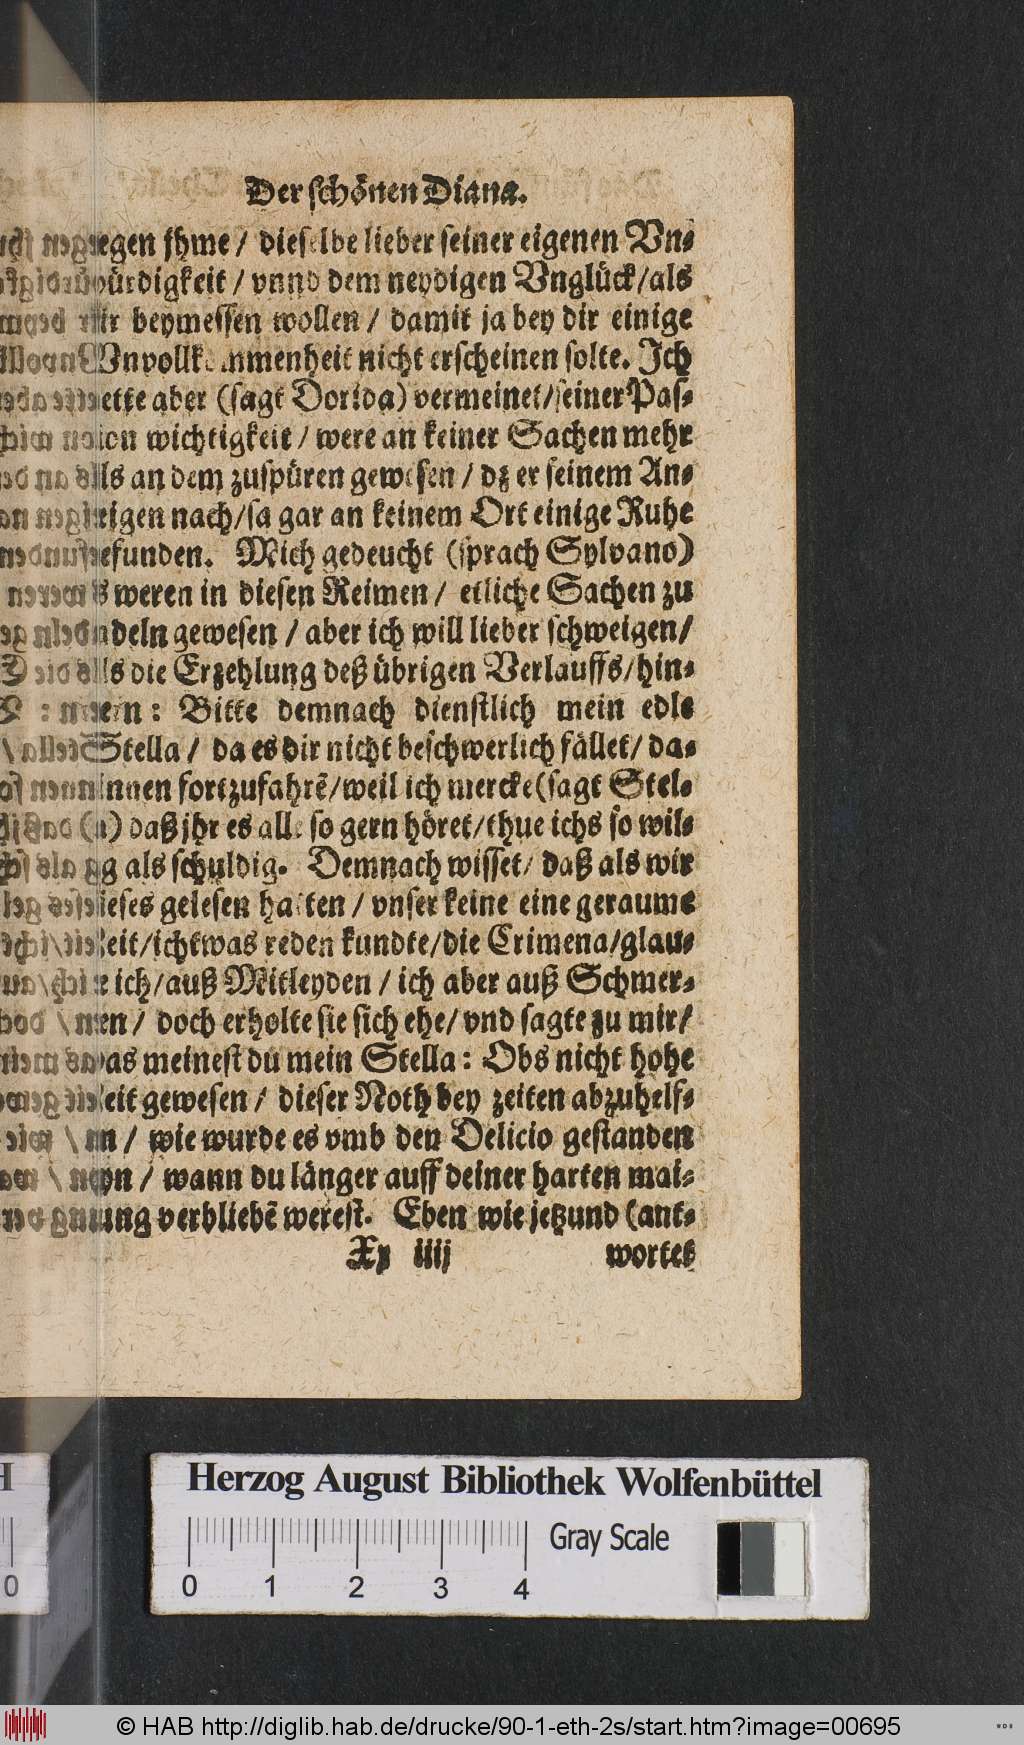 Der schönen Diana.
gegen jhme / dieselbe lieber seiner eigenen Vn-
würdigkeit / vnnd dem neydigen Vnglück / als
dir beymessen wollen / damit ja bey dir einige
Vnvollkommenheit nicht erscheinen solte. Ich
hette aber (sagt Dorida) vermeinet / seiner Pas-
sion wichtigkeit / were an keiner Sachen mehr
als an dem zuspüren gewesen / dz er seinem An-
ligen nach / sa gar an keinem Ort einige Ruhe
gefunden. Mich gedeucht (sprach Sylvano)
es weren in diesen Reimen / etliche Sachen zu
andeln gewesen / aber ich will lieber schweigen /
als die Erzehlung deß übrigen Verlauffs / hin-
dern : Bitte demnach dienstlich mein edle
Stella / da es dir nicht beschwerlich fället / da-
rinnen fortzufahrē / weil ich mercke (sagt Stel-
la) daß jhr es alle so gern höret / thue ichs so wil-
lig als schuldig. Demnach wisset / daß als wir
dieses gelesen hatten / vnser keine eine geraume
Zeit / ichtwas reden kundte / die Crimena / glau-
be ich / auß Mitleyden / ich aber auß Schmer-
tzen / doch erholte sie sich ehe / vnd sagte zu mir /
was meinest du mein Stella : Obs nicht hohe
Zeit gewesen / dieser Noth bey zeiten abzuhelf-
fen / wie wurde es vmb den Delicio gestanden
seyn / wann du länger auff deiner harten mai-
nung verbliebē werest. Eben wie jetzund (ant-
Xy iiij wortet
Herzog August Bibliothek Wolfenbüttel
Gray Scale
0 0 1 2 3 4
© HAB http://diglib.hab.de/drucke/90-1-eth-2s/start.htm?image=00695